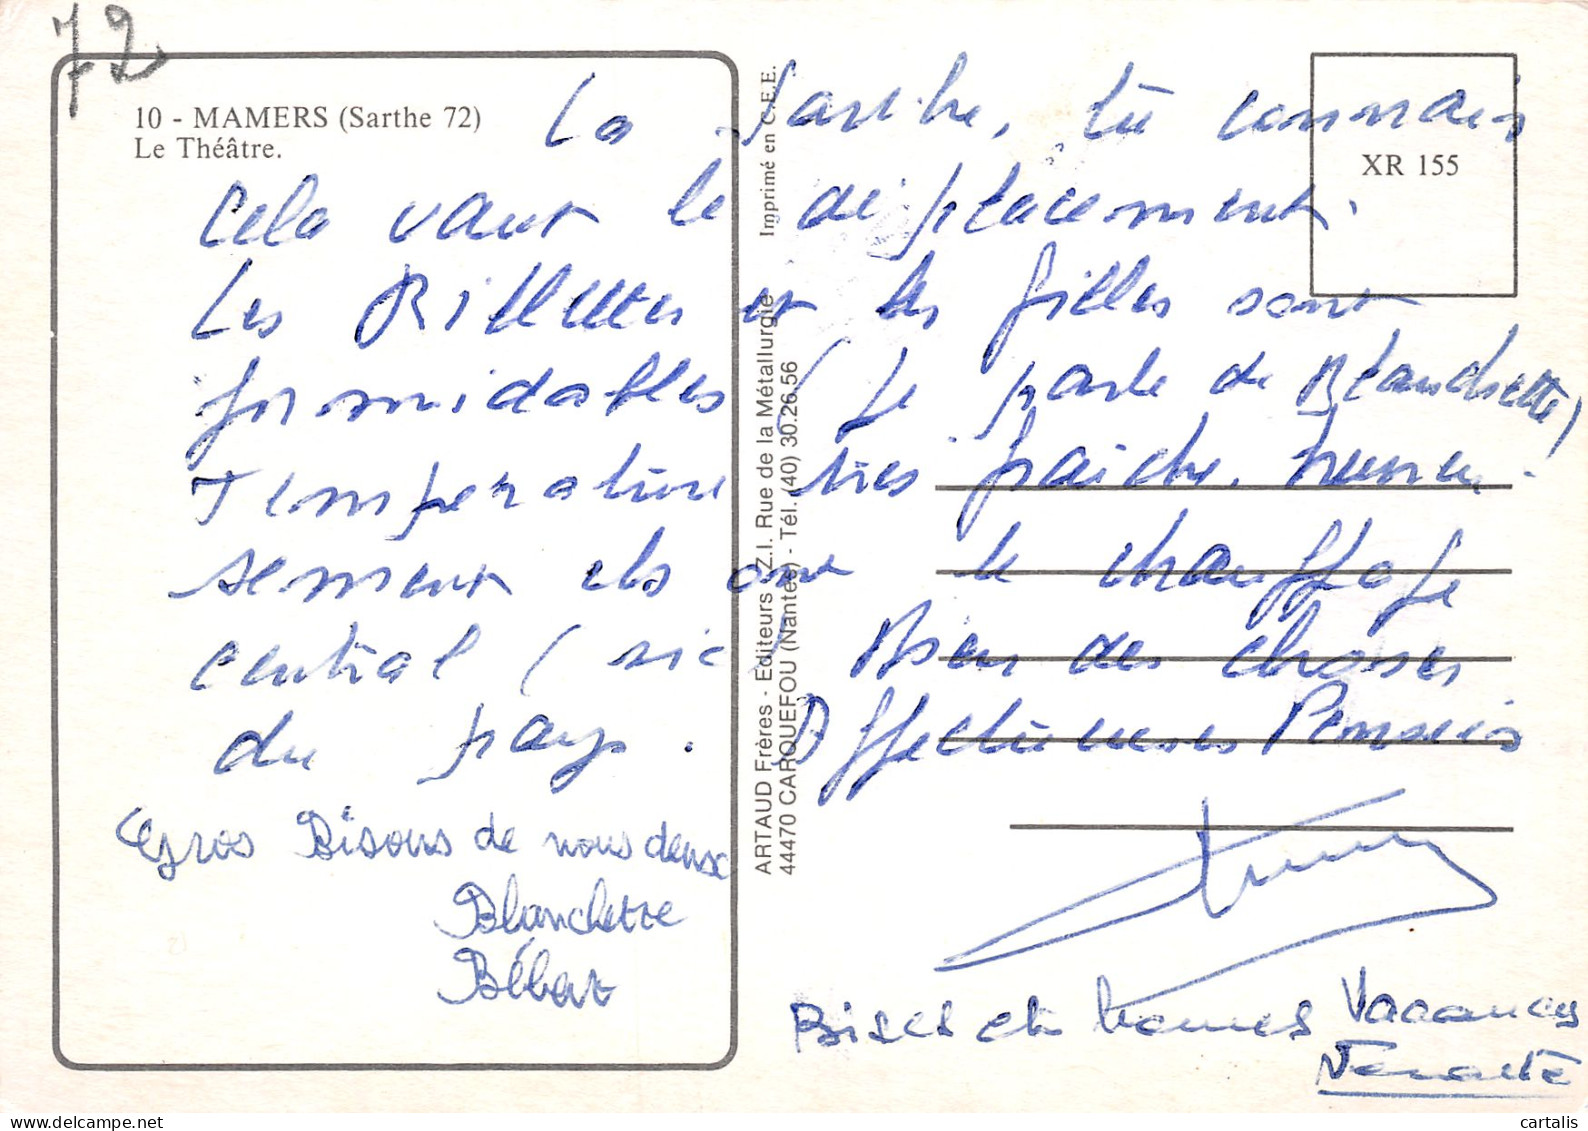 72
10 - MAMERS (Sarthe 72)
Le Théâtre.
XR 155
La Sarthe, tu connais
Cela vaut le déplacement.
Les Rillettes et les filles sont
formidables (je parle de Blanchette)
Température très fraiche. heureu-
sement ils ont le chauffage
central (sic) Bien des choses
du pays. Affectueuses Pensées
Gros Bisous de nous deux
Blanchette
Bises et bonnes Vacances
ARTAUD Frères - Editeurs Z.I. Rue de la Métallurgie
44470 CARQUEFOU (Nantes) - Tél. (40) 30.26.56
Imprimé en C.E.E.
cartalis
delcampe.net